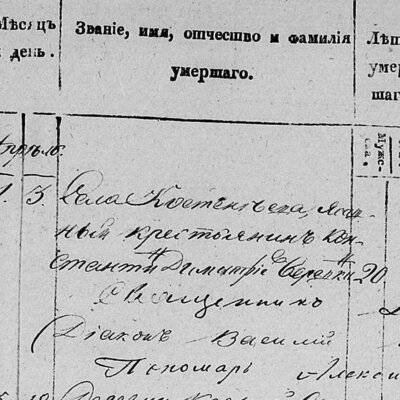 Мѣсяцъ
Званіе, имя, отчество и фамилія
Лѣт
день.
умершаго.
умер
шаго
Муже-
ска.
Апрѣль.
1. 3.
Села Костенѣева,
ный крестьянинъ Кон-
стантинъ Димитріевъ 20.
Священникъ
Діаконъ Василій
Пономарь Алекса